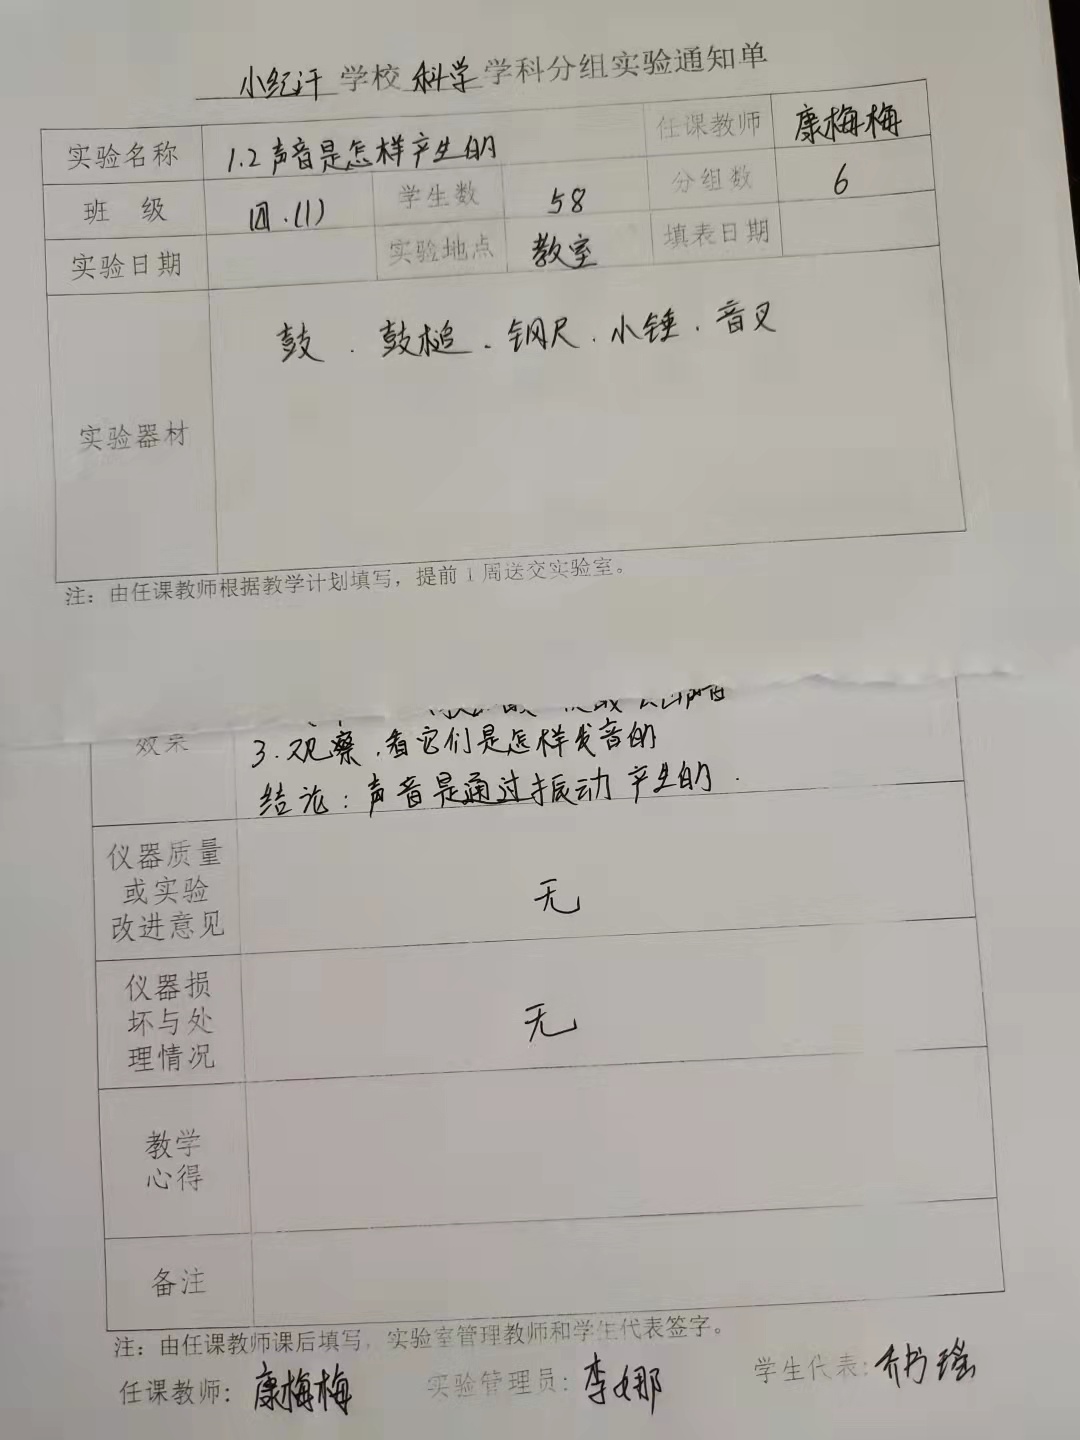 小纪汗学校科学学科分组实验通知单
实验名称 1.2声音是怎样产生的 任课教师 康梅梅
班 级 四.(1) 学生数 58 分组数 6
实验日期 实验地点 教室 填表日期
实验器材 鼓.鼓槌.钢尺.小锤.音叉
注：由任课教师根据教学计划填写，提前1周送交实验室。
效果
3.观察.看它们是怎样发音的
结论：声音是通过振动产生的.
仪器质量
或实验
改进意见
无
仪器损
坏与处
理情况
无
教学
心得
备注
注：由任课教师课后填写，实验室管理教师和学生代表签字。
任课教师：康梅梅 实验管理员：李娜 学生代表: